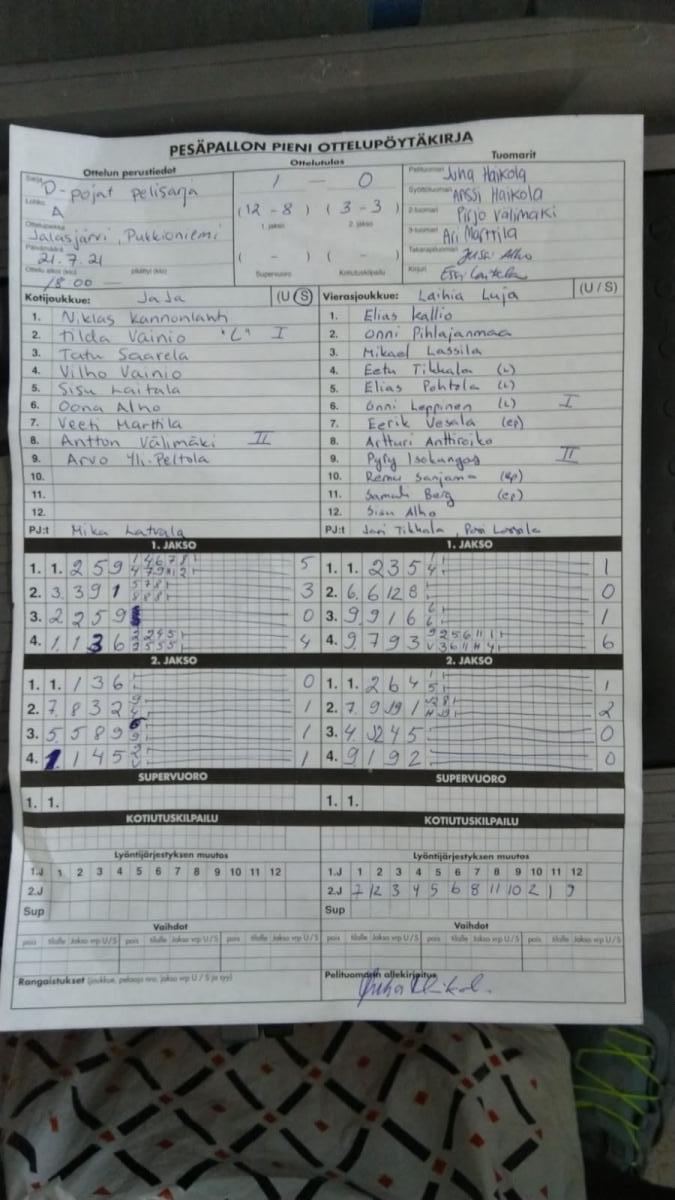 PESÄPALLON PIENI OTTELUPÖYTÄKIRJA
Ottelun perustiedot
Ottelutulos
Tuomarit
Sarja D-pojat pelisarja
Lohko A
Jalasjärvi, Pukkioniemi
Päivämäärä 21.7.21
18.00 —
1 — 0
(12 - 8) (3 - 3)
1. jakso 2. jakso
( - ) ( - )
Supervuoro Kotiutuskilpailu
Pelituomari Juha Haikola
Syöttötuomari Anssi Haikola
2-tuomari Pirjo Välimäki
3-tuomari Ari Marttila
Takarajatuomari Jussi Alho
Kirjuri
Kotijoukkue: JaJa (U/S)
1. Niklas Kannonlahti
2. Tilda Vainio "L" I
3. Tatu Saarela
4. Vilho Vainio
5. Sisu Laitala
6. Oona Alho
7. Veeti Marttila
8. Antton Välimäki II
9. Arvo Yli-Peltola
10.
11.
12.
PJ:t Mika Latvala
Vierasjoukkue: Laihia Luja (U/S)
1. Elias Kallio
2. Onni Pihlajanmaa
3. Mikael Lassila
4. Eetu Tikkala (L)
5. Elias Pohtola (L)
6. Onni Leppinen (L) I
7. Eerik Vesala (ep)
8. Artturi Anttiroiko
9. Pyry Isokangas II
10. Remu Sanjama (ep)
11. Samuli Berg (ep)
12. Sisu Alho
PJ:t Jari Tikkala,
1. JAKSO
1. 1. 2 5 9 5
2. 3. 3 9 1 3
3. 2 2 5 9 0
4. 1. 1 3 6 4
1. JAKSO
1. 1. 2 3 5 1
2. 6. 6 12 8 0
3. 9 9 1 6 1
4. 9. 7 9 3 6
2. JAKSO
1. 1. 1 3 6 0
2. 7. 8 3 2 1
3. 5 5 8 9 1
4. 1. 1 4 5 1
2. JAKSO
1. 1. 2 6 4 1
2. 7. 9 1 2
3. 4 12 4 5 0
4. 9 1 9 2 0
SUPERVUORO
1. 1.
SUPERVUORO
1. 1.
KOTIUTUSKILPAILU
KOTIUTUSKILPAILU
Lyöntijärjestyksen muutos
1.J 1 2 3 4 5 6 7 8 9 10 11 12
2.J
Sup
Lyöntijärjestyksen muutos
1.J 1 2 3 4 5 6 7 8 9 10 11 12
2.J 7 12 3 4 5 6 8 11 10 2 1 9
Sup
Vaihdot
pois tilalle Jakso vrp U/S pois tilalle Jakso vrp U/S
Vaihdot
pois tilalle Jakso vrp U/S pois tilalle Jakso vrp U/S
Rangaistukset (joukkue, pelaaja nro, jakso vrp U / S ja syy)
Pelituomarin allekirjoitus
Juha Haikola